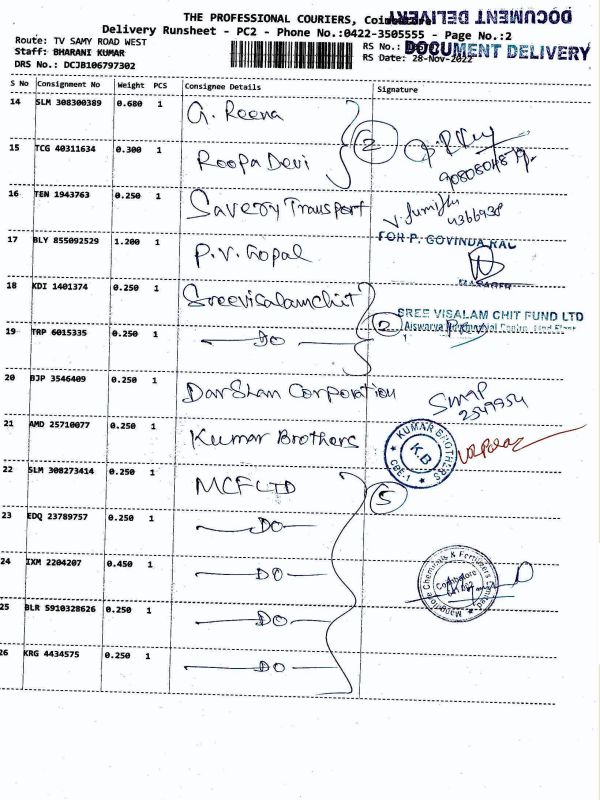 THE PROFESSIONAL COURIERS, Coimbatore
DOCUMENT DELIVERY
Delivery Runsheet - PC2 - Phone No.:0422-3505555 - Page No.:2
Route: TV SAMY ROAD WEST
RS No.:
DOCUMENT DELIVERY
Staff: BHARANI KUMAR
RS Date: 28-Nov-2022
DRS No.: DCJB106797302
S No Consignment No Weight PCS Consignee Details Signature
14 SLM 308300389 0.680 1 G. Reena
15 TCG 40311634 0.300 1 Roopa Devi 2
16 TEN 1943763 0.250 1 Savery Transport
4366938
17 BLY 855092529 1.200 1 P.V. Gopal
FOR P. GOVINDARAJ
MANAGER
18 KDI 1401374 0.250 1 Sreevisalamchit
SREE VISALAM CHIT FUND LTD
19 TRP 6015335 0.250 1 DO 2
20 BJP 3546409 0.250 1 Darshan Corporation
2549954
21 AMD 25710077 0.250 1 Kumar Brothers
KUMAR BROTHERS
K.B
CBE-1
22 SLM 308273414 0.250 1 MCF LTD 5
23 EDQ 23789757 0.250 1 DO
24 IXM 2204207 0.450 1 DO
Mangalore Chemicals & Fertilizers Limited
Coimbatore
25 BLR 5910328626 0.250 1 DO
26 KRG 4434575 0.250 1 DO